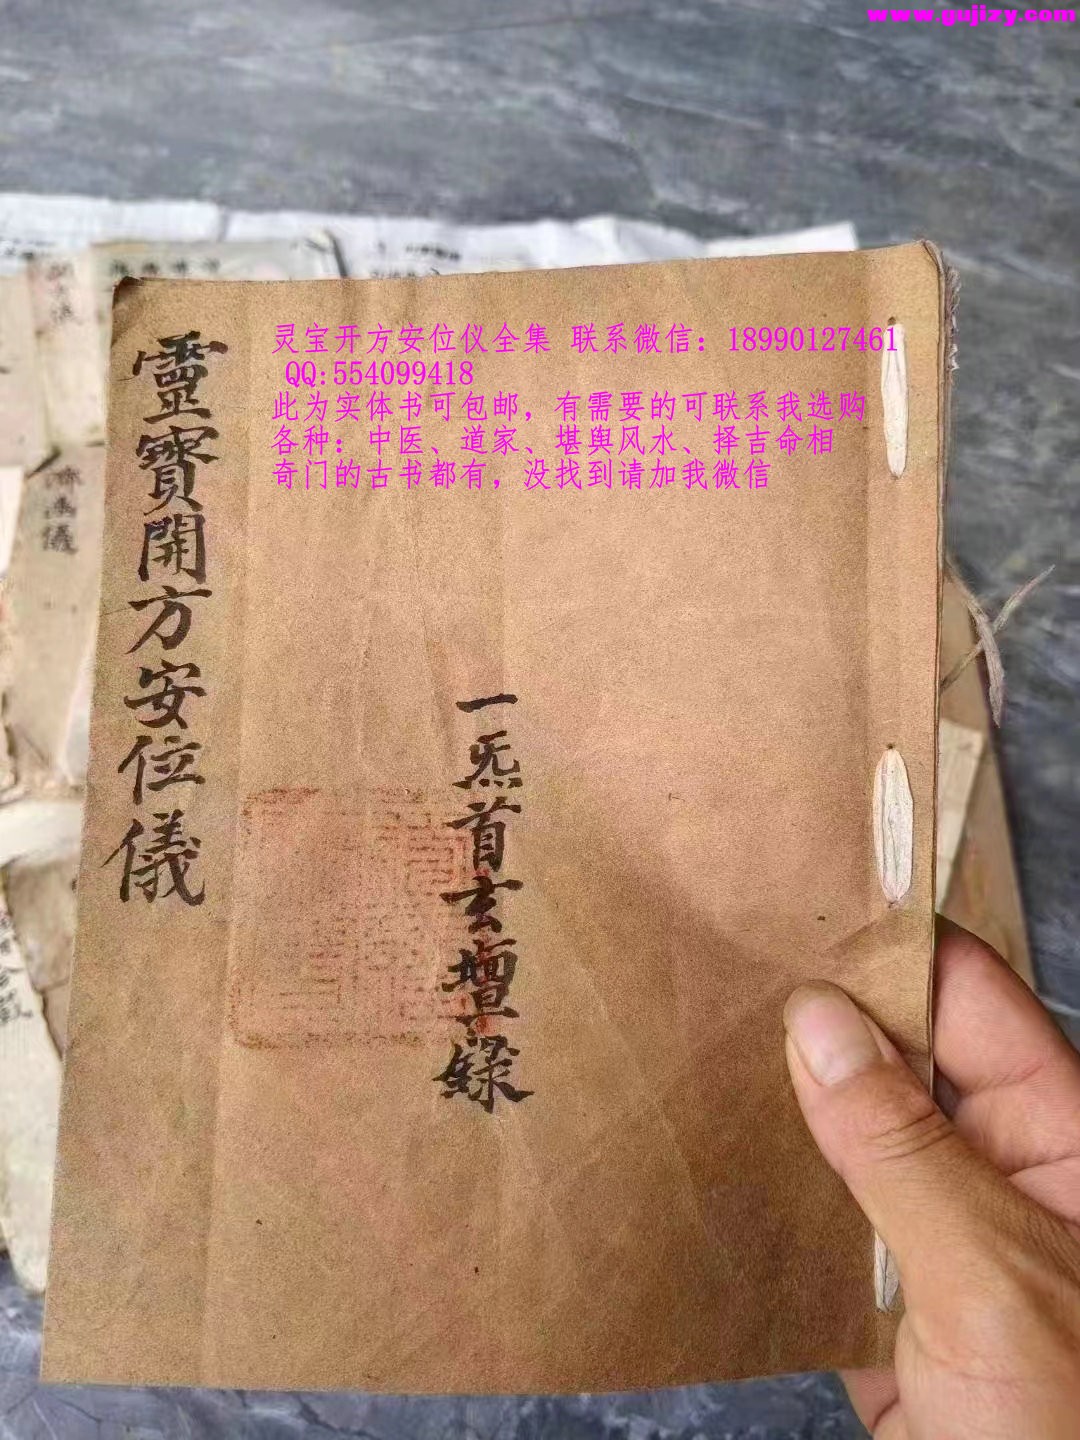 www.gujizy.com
灵宝开方安位仪全集 联系微信：18990127461
QQ:554099418
此为实体书可包邮，有需要的可联系我选购
各种：中医、道家、堪舆风水、择吉命相
奇门的古书都有，没找到请加我微信
靈寳開方安位儀
一炁首玄壇錄